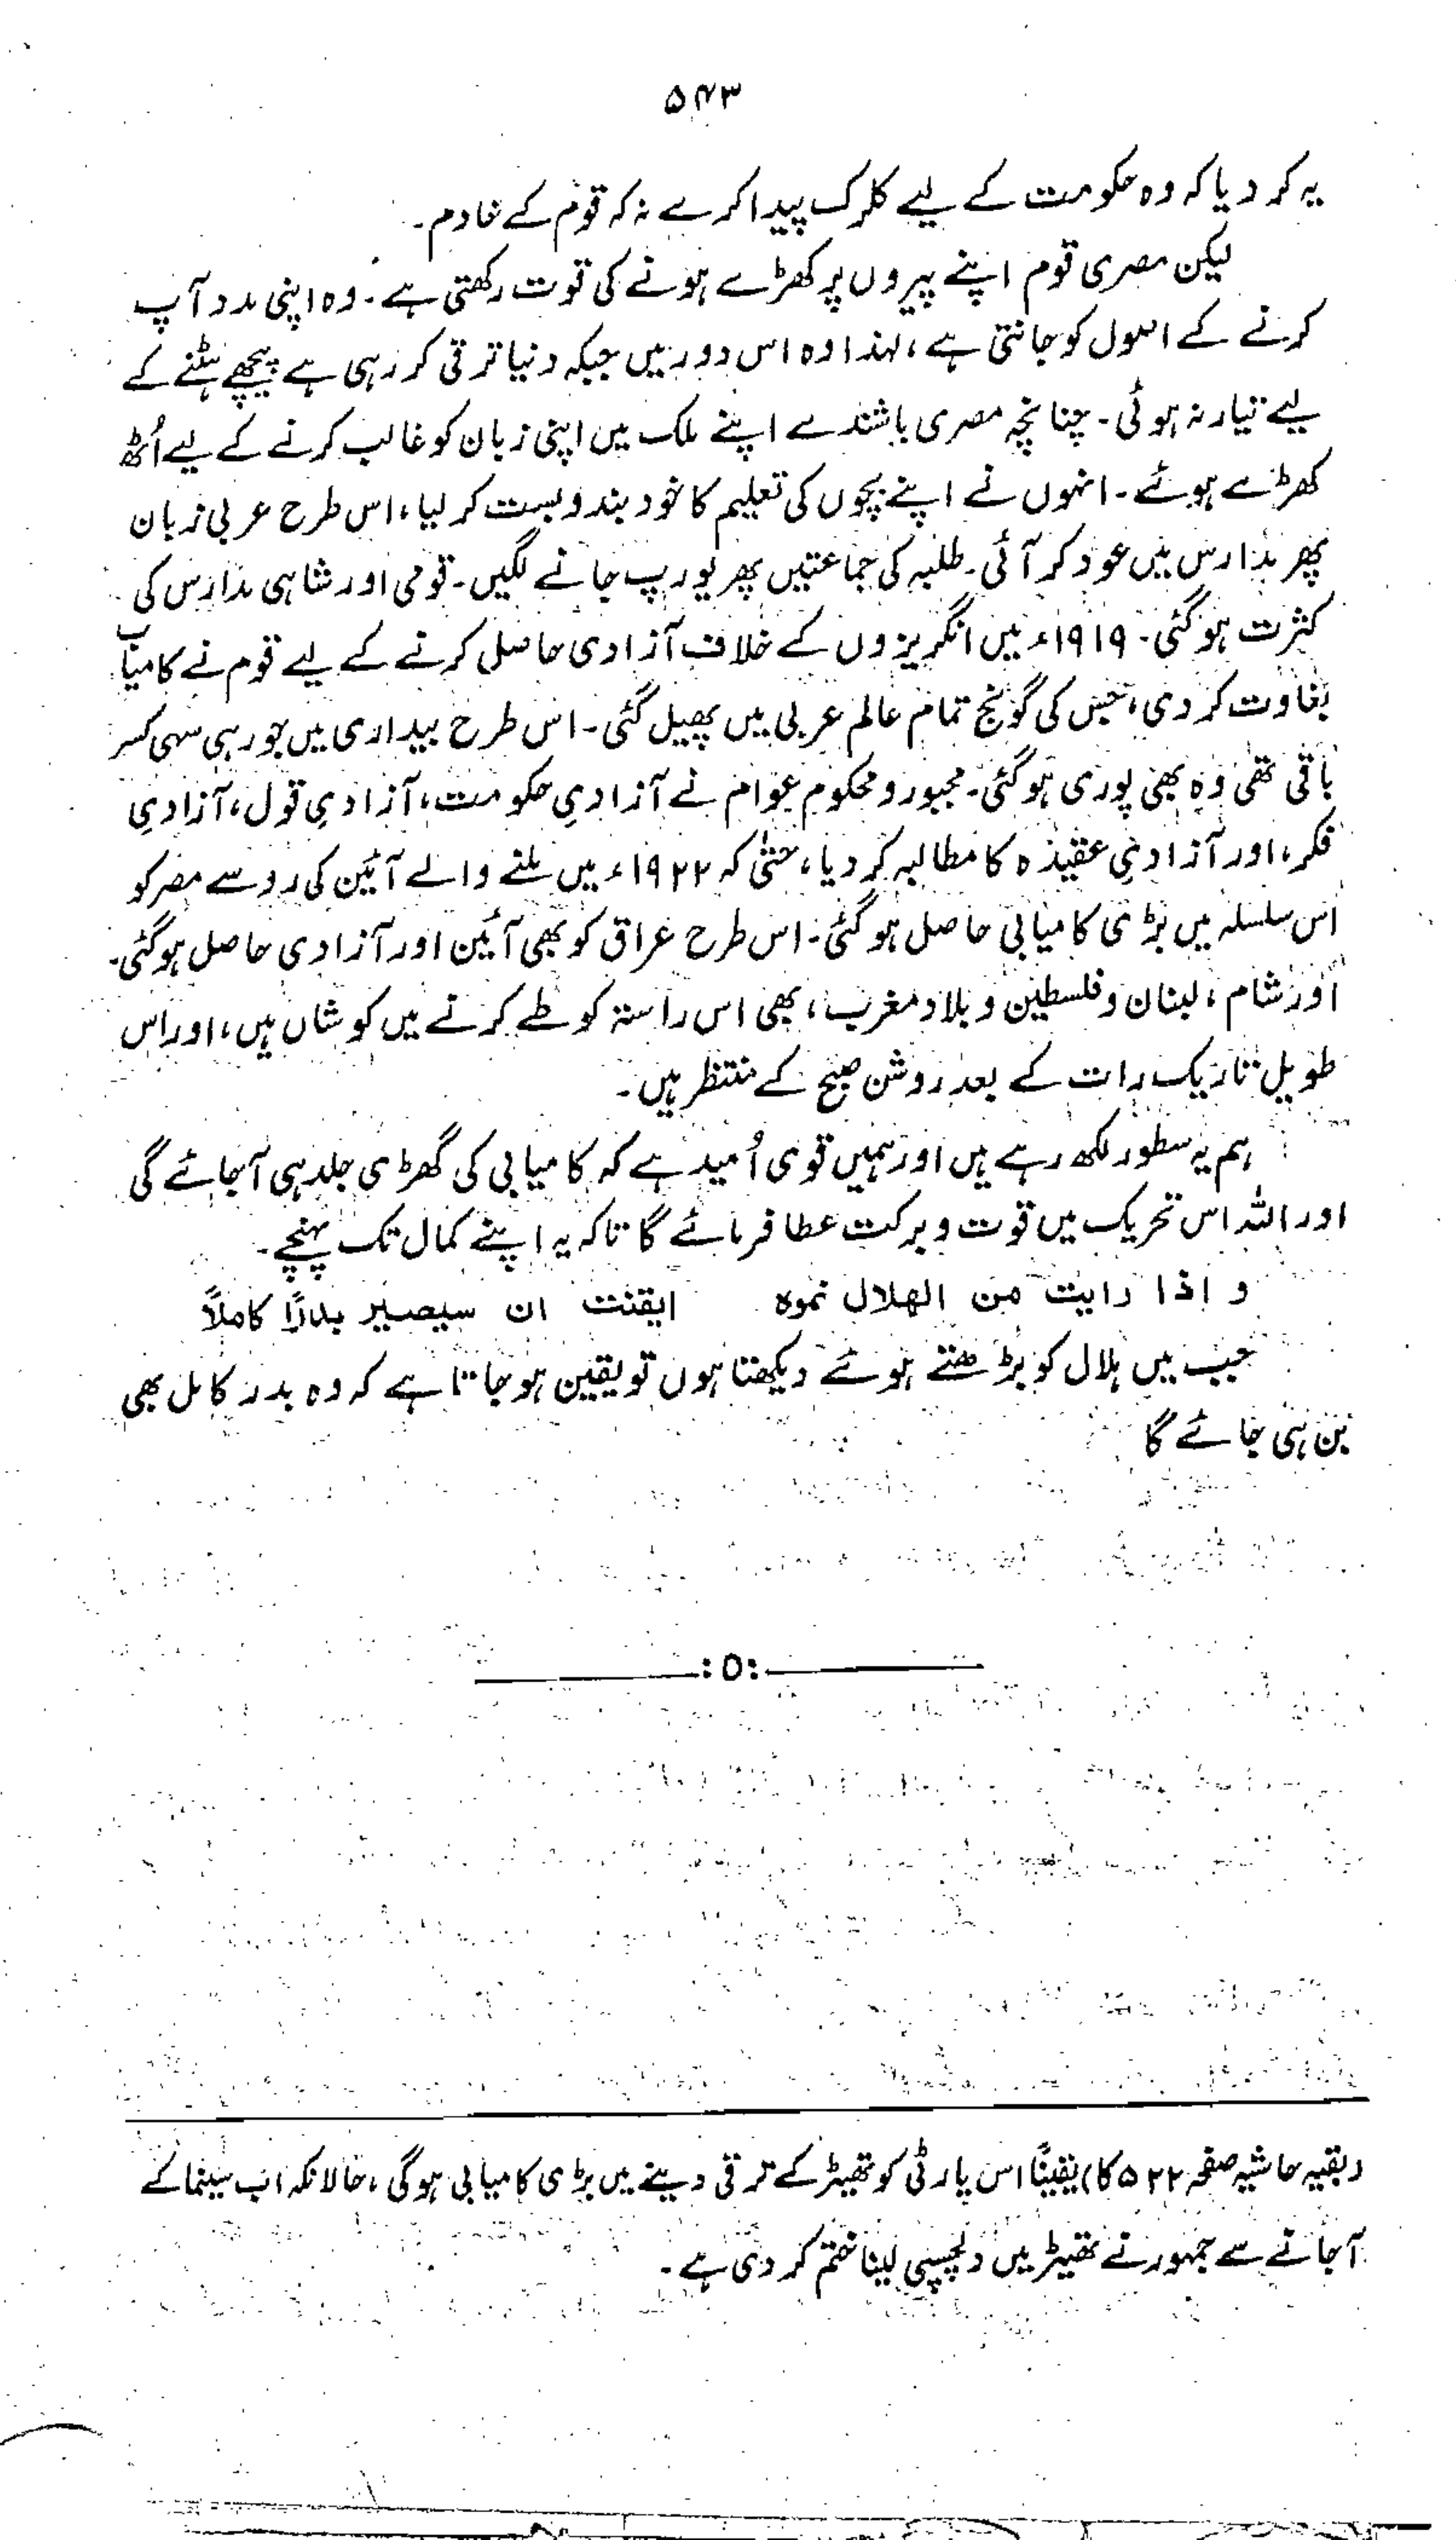 ۵۴۳
یہ کر دیا کہ وہ حکومت کے لیے کلرک پیدا کرے نہ کہ قوم کے خادم۔
لیکن مصری قوم اپنے پیروں پر کھڑے ہونے کی قوت رکھتی ہے۔ وہ اپنی مدد آپ
کرنے کے اصول کو جانتی ہے، لہٰذا وہ اس دور میں جبکہ دنیا ترقی کر رہی ہے پیچھے ہٹنے کے
لیے تیار نہ ہوئی۔ چنانچہ مصری باشندے اپنے ملک میں اپنی زبان کو غالب کرنے کے لیے اُٹھ
کھڑے ہوئے۔ انہوں نے اپنے بچوں کی تعلیم کا خود بندوبست کر لیا، اس طرح عربی زبان
پھر مدارس میں عود کر آئی۔ طلبہ کی جماعتیں پھر یورپ جانے لگیں۔ قومی اور شاہی مدارس کی
کثرت ہو گئی۔ ۱۹۱۹ء میں انگریزوں کے خلاف آزادی حاصل کرنے کے لیے قوم نے کامیاب
بغاوت کر دی، جس کی گونج تمام عالم عربی میں پھیل گئی۔ اس طرح بیداری میں جو رہی سہی کسر
باقی تھی وہ بھی پوری ہو گئی۔ مجبور و محکوم عوام نے آزادیِ حکومت، آزادیِ قول، آزادیِ
فکر، اور آزادیِ عقیدہ کا مطالبہ کر دیا، حتیٰ کہ ۱۹۲۲ء میں ملنے والے آئین کی رو سے مصر کو
اس سلسلہ میں بڑی کامیابی حاصل ہو گئی۔ اس طرح عراق کو بھی آئین اور آزادی حاصل ہو گئی۔
اور شام، لبنان و فلسطین و بلاد مغرب، بھی اس راستہ کو طے کرنے میں کوشاں ہیں، اور اس
طویل تاریک رات کے بعد روشن صبح کے منتظر ہیں۔
ہم یہ سطور لکھ رہے ہیں اور ہمیں قوی اُمید ہے کہ کامیابی کی گھڑی جلد ہی آ جائے گی
اور اللہ اس تحریک میں قوت و برکت عطا فرمائے گا تاکہ یہ اپنے کمال تک پہنچے۔
و اذا رایت من الهلال نموه ایقنت ان سیصیر بدرًا کاملاً
جب میں ہلال کو بڑھتے ہوئے دیکھتا ہوں تو یقین ہو جاتا ہے کہ وہ بدر کامل بھی
بن ہی جائے گا
:o:
(بقیہ حاشیہ صفحہ ۵۲۲ کا) یقیناً اس پارٹی کو تھیٹر کے ترقی دینے میں بڑی کامیابی ہوگی، حالانکہ اب سینما کے
آجانے سے جمہور نے تھیٹر میں دلچسپی لینا ختم کر دی ہے۔